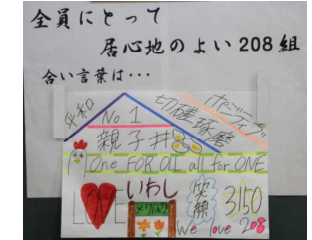 全員にとって
居心地のよい208組
合い言葉は・・・
平和
No 1
切磋琢磨
ポジティブ
親子丼
One FOR all all for ONE
LOVE
いわし
メリハリ
3150
We love 208